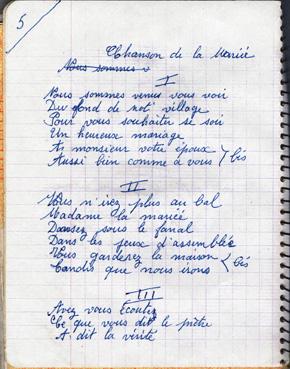 5
Chanson de la Mariée
Nous sommes v
I
Nous sommes venus vous voir
Du fond de not' village
Pour vous souhaiter ce soir
Un heureux mariage
A monsieur votre époux
Aussi bien comme à vous } bis
II
Vous n'irez plus au bal
Madame la mariée
Danser sous le fanal
Dans les jeux d'assemblée
Vous garderez la maison
Tandis que nous irons } bis
III
Avez vous Écoutez
Ce que vous dit le prêtre
A dit la vérité